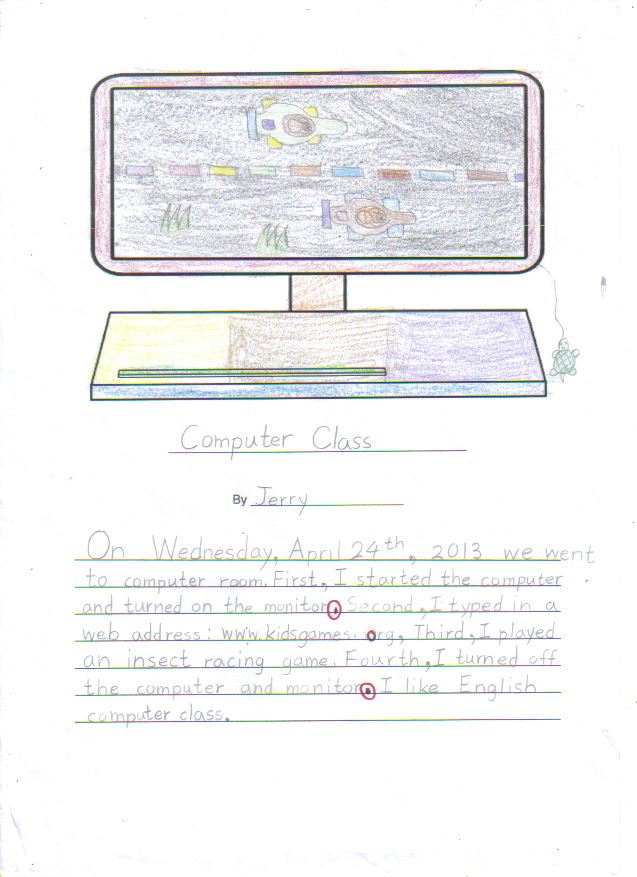 Computer Class
By Jerry
On Wednesday, April 24th, 2013 we went
to computer room. First, I started the computer
and turned on the monitor. Second, I typed in a
web address: www.kidsgames.org, Third, I played
an insect racing game. Fourth, I turned off
the computer and monitor. I like English
computer class.